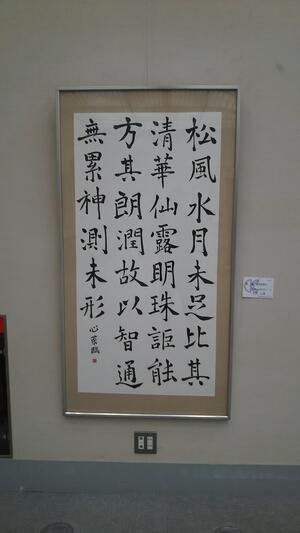 松風水月未足比其
清華仙露明珠詎能
方其朗潤故以智通
無累神測未形